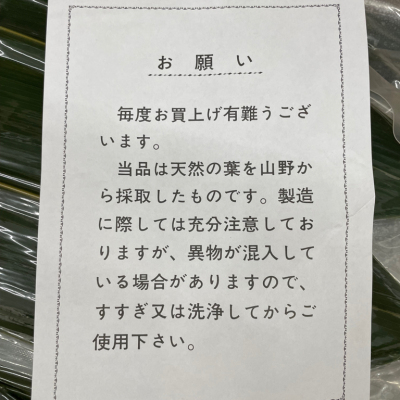 お願い
毎度お買上げ有難うござ
います。
当品は天然の葉を山野か
ら採取したものです。製造
に際しては充分注意してお
りますが、異物が混入して
いる場合がありますので、
すすぎ又は洗浄してからご
使用下さい。